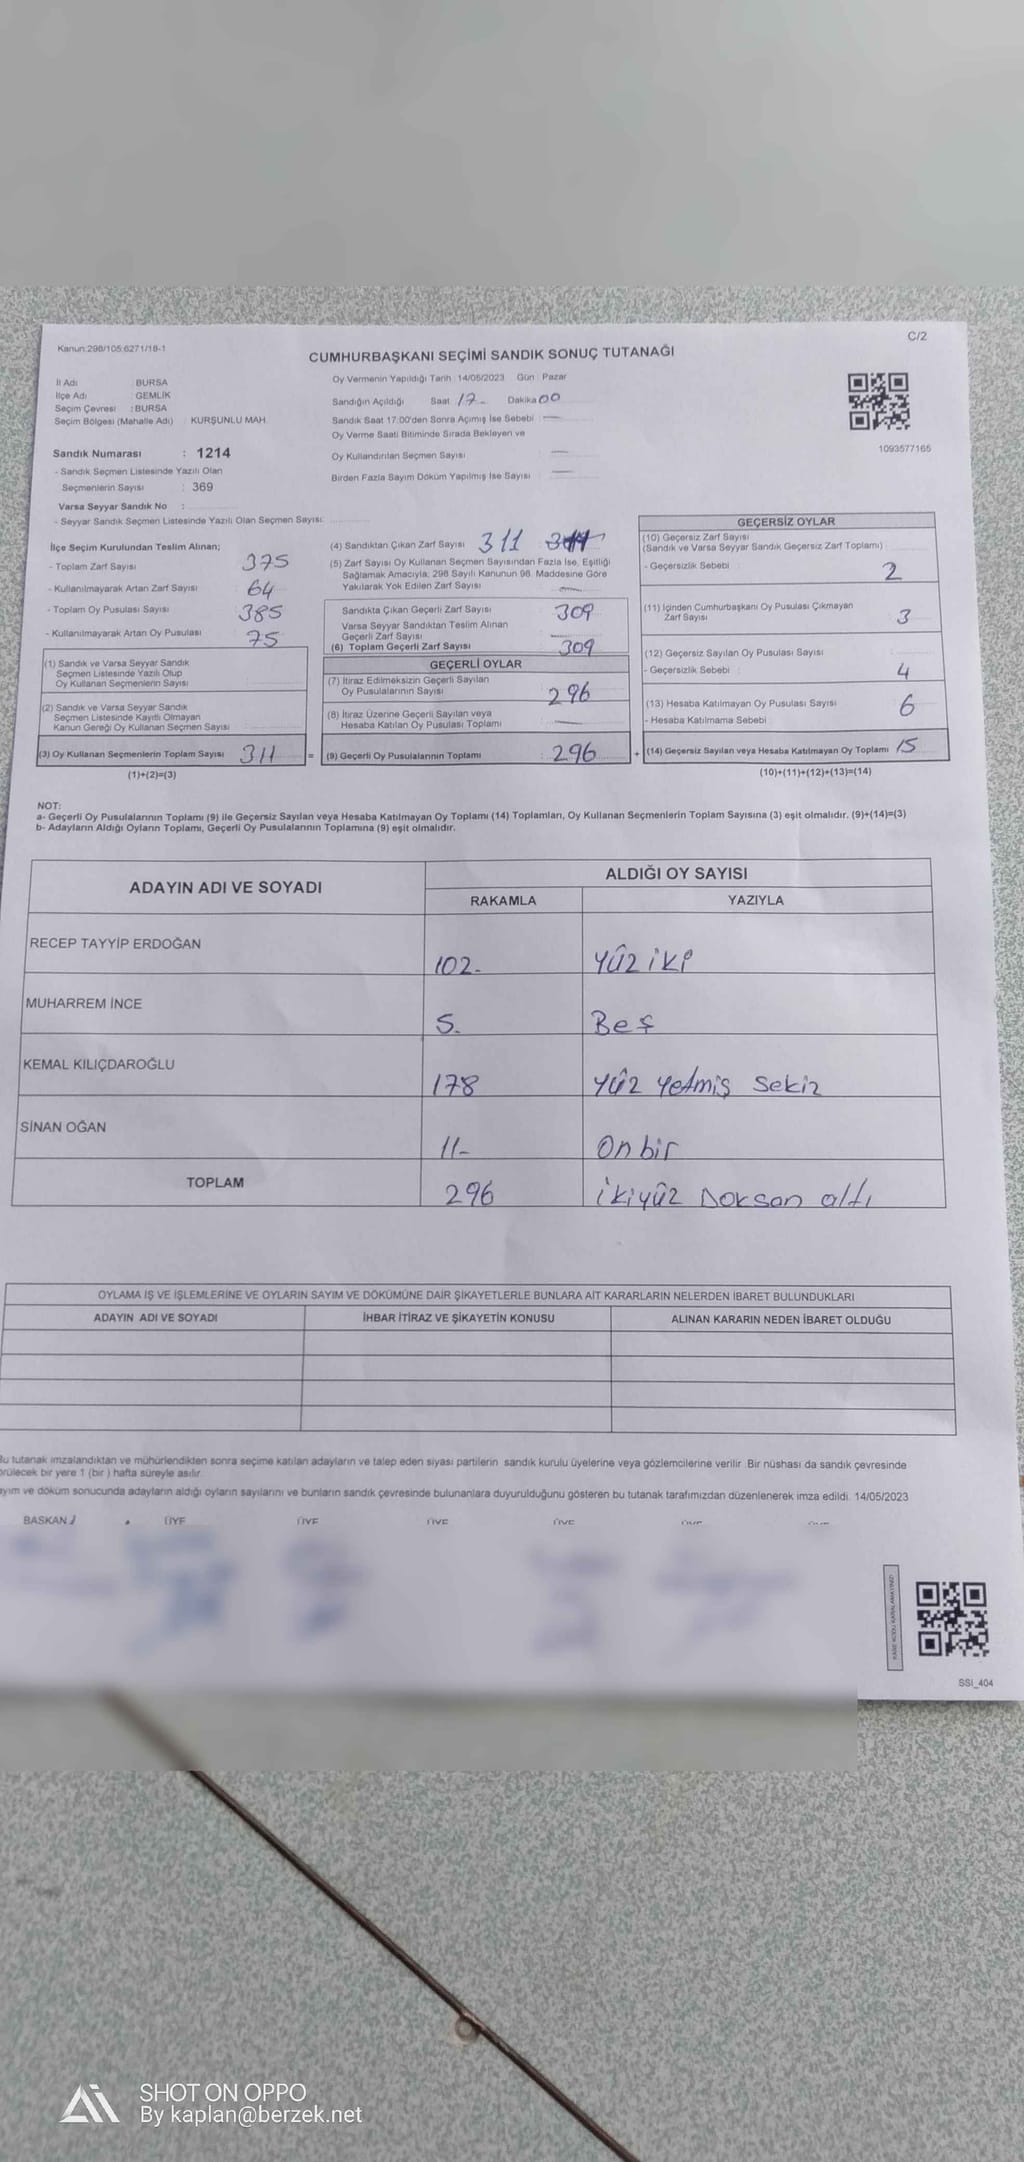 Kanun:298/105:6271/18-1
C/2
CUMHURBAŞKANI SEÇİMİ SANDIK SONUÇ TUTANAĞI
İl Adı : BURSA
İlçe Adı : GEMLİK
Seçim Çevresi : BURSA
Seçim Bölgesi (Mahalle Adı) : KURŞUNLU MAH
Sandık Numarası : 1214
- Sandık Seçmen Listesinde Yazılı Olan
Seçmenlerin Sayısı : 369
Varsa Seyyar Sandık No :
- Seyyar Sandık Seçmen Listesinde Yazılı Olan Seçmen Sayısı:
Oy Vermenin Yapıldığı Tarih : 14/05/2023 Gün : Pazar
Sandığın Açıldığı Saat 17 Dakika 00
Sandık Saat 17:00'den Sonra Açımış İse Sebebi : —
Oy Verme Saati Bitiminde Sırada Bekleyen ve
Oy Kullandırılan Seçmen Sayısı : —
Birden Fazla Sayım Döküm Yapılmış İse Sayısı : —
1093577165
İlçe Seçim Kurulundan Teslim Alınan;
- Toplam Zarf Sayısı 375
- Kullanılmayarak Artan Zarf Sayısı 64
- Toplam Oy Pusulası Sayısı 385
- Kullanılmayarak Artan Oy Pusulası 75
(1) Sandık ve Varsa Seyyar Sandık
Seçmen Listesinde Yazılı Olup
Oy Kullanan Seçmenlerin Sayısı
(2) Sandık ve Varsa Seyyar Sandık
Seçmen Listesinde Kayıtlı Olmayan
Kanun Gereği Oy Kullanan Seçmen Sayısı
(3) Oy Kullanan Seçmenlerin Toplam Sayısı 311 =
(1)+(2)=(3)
(4) Sandıktan Çıkan Zarf Sayısı 311
(5) Zarf Sayısı Oy Kullanan Seçmen Sayısından Fazla İse, Eşitliği
Sağlamak Amacıyla; 298 Sayılı Kanunun 98. Maddesine Göre
Yakılarak Yok Edilen Zarf Sayısı —
Sandıkta Çıkan Geçerli Zarf Sayısı 309
Varsa Seyyar Sandıktan Teslim Alınan
Geçerli Zarf Sayısı —
(6) Toplam Geçerli Zarf Sayısı 309
GEÇERLİ OYLAR
(7) İtiraz Edilmeksizin Geçerli Sayılan
Oy Pusulalarının Sayısı 296
(8) İtiraz Üzerine Geçerli Sayılan veya
Hesaba Katılan Oy Pusulası Toplamı —
(9) Geçerli Oy Pusulalarının Toplamı 296 +
GEÇERSİZ OYLAR
(10) Geçersiz Zarf Sayısı
(Sandık ve Varsa Seyyar Sandık Geçersiz Zarf Toplamı)
- Geçersizlik Sebebi : 2
(11) İçinden Cumhurbaşkanı Oy Pusulası Çıkmayan
Zarf Sayısı 3
(12) Geçersiz Sayılan Oy Pusulası Sayısı
- Geçersizlik Sebebi : 4
(13) Hesaba Katılmayan Oy Pusulası Sayısı 6
- Hesaba Katılmama Sebebi :
(14) Geçersiz Sayılan veya Hesaba Katılmayan Oy Toplamı 15
(10)+(11)+(12)+(13)=(14)
NOT:
a- Geçerli Oy Pusulalarının Toplamı (9) ile Geçersiz Sayılan veya Hesaba Katılmayan Oy Toplamı (14) Toplamları, Oy Kullanan Seçmenlerin Toplam Sayısına (3) eşit olmalıdır. (9)+(14)=(3)
b- Adayların Aldığı Oyların Toplamı, Geçerli Oy Pusulalarının Toplamına (9) eşit olmalıdır.
ADAYIN ADI VE SOYADI
ALDIĞI OY SAYISI
RAKAMLA YAZIYLA
RECEP TAYYİP ERDOĞAN 102- Yüz iki
MUHARREM İNCE 5. Beş
KEMAL KILIÇDAROĞLU 178 Yüz Yetmiş Sekiz
SİNAN OĞAN 11- On bir
TOPLAM 296 ikiyüz Doksan altı
OYLAMA İŞ VE İŞLEMLERİNE VE OYLARIN SAYIM VE DÖKÜMÜNE DAİR ŞİKAYETLERLE BUNLARA AİT KARARLARIN NELERDEN İBARET BULUNDUKLARI
ADAYIN ADI VE SOYADI İHBAR İTİRAZ VE ŞİKAYETİN KONUSU ALINAN KARARIN NEDEN İBARET OLDUĞU
Bu tutanak imzalandıktan ve mühürlendikten sonra seçime katılan adayların ve talep eden siyasi partilerin sandık kurulu üyelerine veya gözlemcilerine verilir. Bir nüshası da sandık çevresinde
görülecek bir yere 1 (bir) hafta süreyle asılır.
Sayım ve döküm sonucunda adayların aldığı oyların sayılarını ve bunların sandık çevresinde bulunanlara duyurulduğunu gösteren bu tutanak tarafımızdan düzenlenerek imza edildi. 14/05/2023
BAŞKAN ÜYE ÜYE ÜYE ÜYE
SSİ_404
SHOT ON OPPO
By kaplan@berzek.net